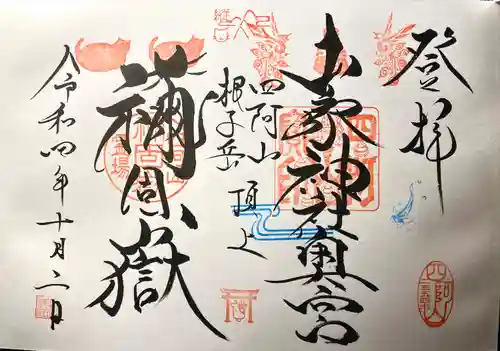 登拝
山家神社奥宮
四阿山
根子岳 頂上
禰固嶽
令和四年十月二日